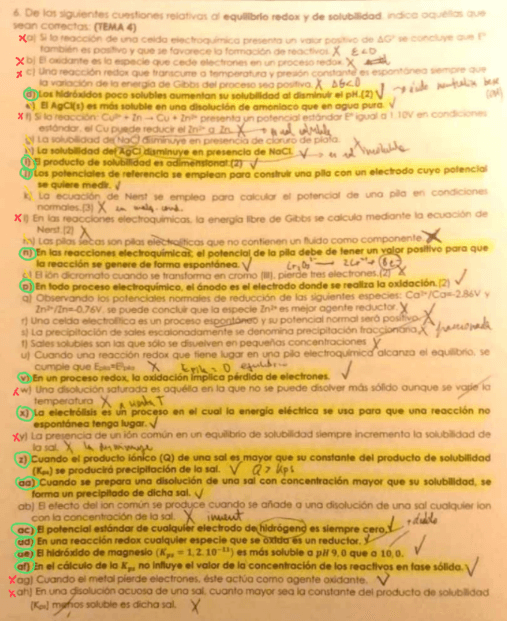 6. De las siguientes cuestiones relativas al equilibrio redox y de solubilidad, indica aquéllas que
sean correctas: (TEMA 4)
a) Si la reacción de una celda electroquímica presenta un valor positivo de ΔG° se concluye que E°
también es positivo y que se favorece la formación de reactivos. X
b) El oxidante es la especie que cede electrones en un proceso redox. X
c) Una reacción redox que transcurre a temperatura y presión constante es espontánea siempre que
la variación de la energía de Gibbs del proceso sea positiva. X ΔG<0
d) Los hidróxidos poco solubles aumentan su solubilidad al disminuir el pH. (2) ✓
e) El AgCl(s) es más soluble en una disolución de amoniaco que en agua pura. ✓
f) Si la reacción: Cu²⁺ + Zn → Cu + Zn²⁺ presenta un potencial estándar E° igual a 1.10V en condiciones
estándar, el Cu puede reducir el Zn²⁺ a Zn. X
g) La solubilidad de NaCl disminuye en presencia de cloruro de plata.
h) La solubilidad de AgCl disminuye en presencia de NaCl. ✓
i) El producto de solubilidad es adimensional. (2) ✓
j) Los potenciales de referencia se emplean para construir una pila con un electrodo cuyo potencial
se quiere medir. ✓
k) La ecuación de Nernst se emplea para calcular el potencial de una pila en condiciones
normales. (3) X
l) En las reacciones electroquímicas, la energía libre de Gibbs se calcula mediante la ecuación de
Nerst. (2) X
m) Las pilas secas son pilas electrolíticas que no contienen un fluido como componente. X
n) En las reacciones electroquímicas, el potencial de la pila debe de tener un valor positivo para que
la reacción se genere de forma espontánea. ✓
o) El ión dicromato cuando se transforma en cromo (III), pierde tres electrones. (2) X
p) En todo proceso electroquímico, el ánodo es el electrodo donde se realiza la oxidación. (2) ✓
q) Observando los potenciales normales de reducción de las siguientes especies: Ca²⁺/Ca=-2.86V y
Zn²⁺/Zn=-0.76V, se puede concluir que la especie Zn²⁺ es mejor agente reductor. X
r) Una celda electrolítica es un proceso espontáneo y su potencial normal será positivo. X
s) La precipitación de sales escalonadamente se denomina precipitación fraccionaria. X fraccionada
t) Sales solubles son las que sólo se disuelven en pequeñas concentraciones X
u) Cuando una reacción redox que tiene lugar en una pila electroquímica alcanza el equilibrio, se
cumple que X
v) En un proceso redox, la oxidación implica pérdida de electrones. ✓
w) Una disolución saturada es aquélla en la que no se puede disolver más sólido aunque se varíe la
temperatura X
x) La electrólisis es un proceso en el cual la energía eléctrica se usa para que una reacción no
espontánea tenga lugar. ✓
y) La presencia de un ión común en un equilibrio de solubilidad siempre incrementa la solubilidad de
la sal. X
z) Cuando el producto iónico (Q) de una sal es mayor que su constante del producto de solubilidad
(Kps) se producirá precipitación de la sal. ✓ Q > Kps
aa) Cuando se prepara una disolución de una sal con concentración mayor que su solubilidad, se
forma un precipitado de dicha sal. ✓
ab) El efecto del ion común se produce cuando se añade a una disolución de una sal cualquier ion
con la concentración de la sal. X
ac) El potencial estándar de cualquier electrodo de hidrógeno es siempre cero. ✓
ad) En una reacción redox cualquier especie que se oxida es un reductor. ✓
ae) El hidróxido de magnesio (Kps = 1,2.10⁻¹¹) es más soluble a pH 9,0 que a 10,0. ✓
af) En el cálculo de la Kps no influye el valor de la concentración de los reactivos en fase sólida. ✓
ag) Cuando el metal pierde electrones, éste actúa como agente oxidante. ✓
ah) En una disolución acuosa de una sal, cuanto mayor sea la constante del producto de solubilidad
(Kps) menos soluble es dicha sal. X